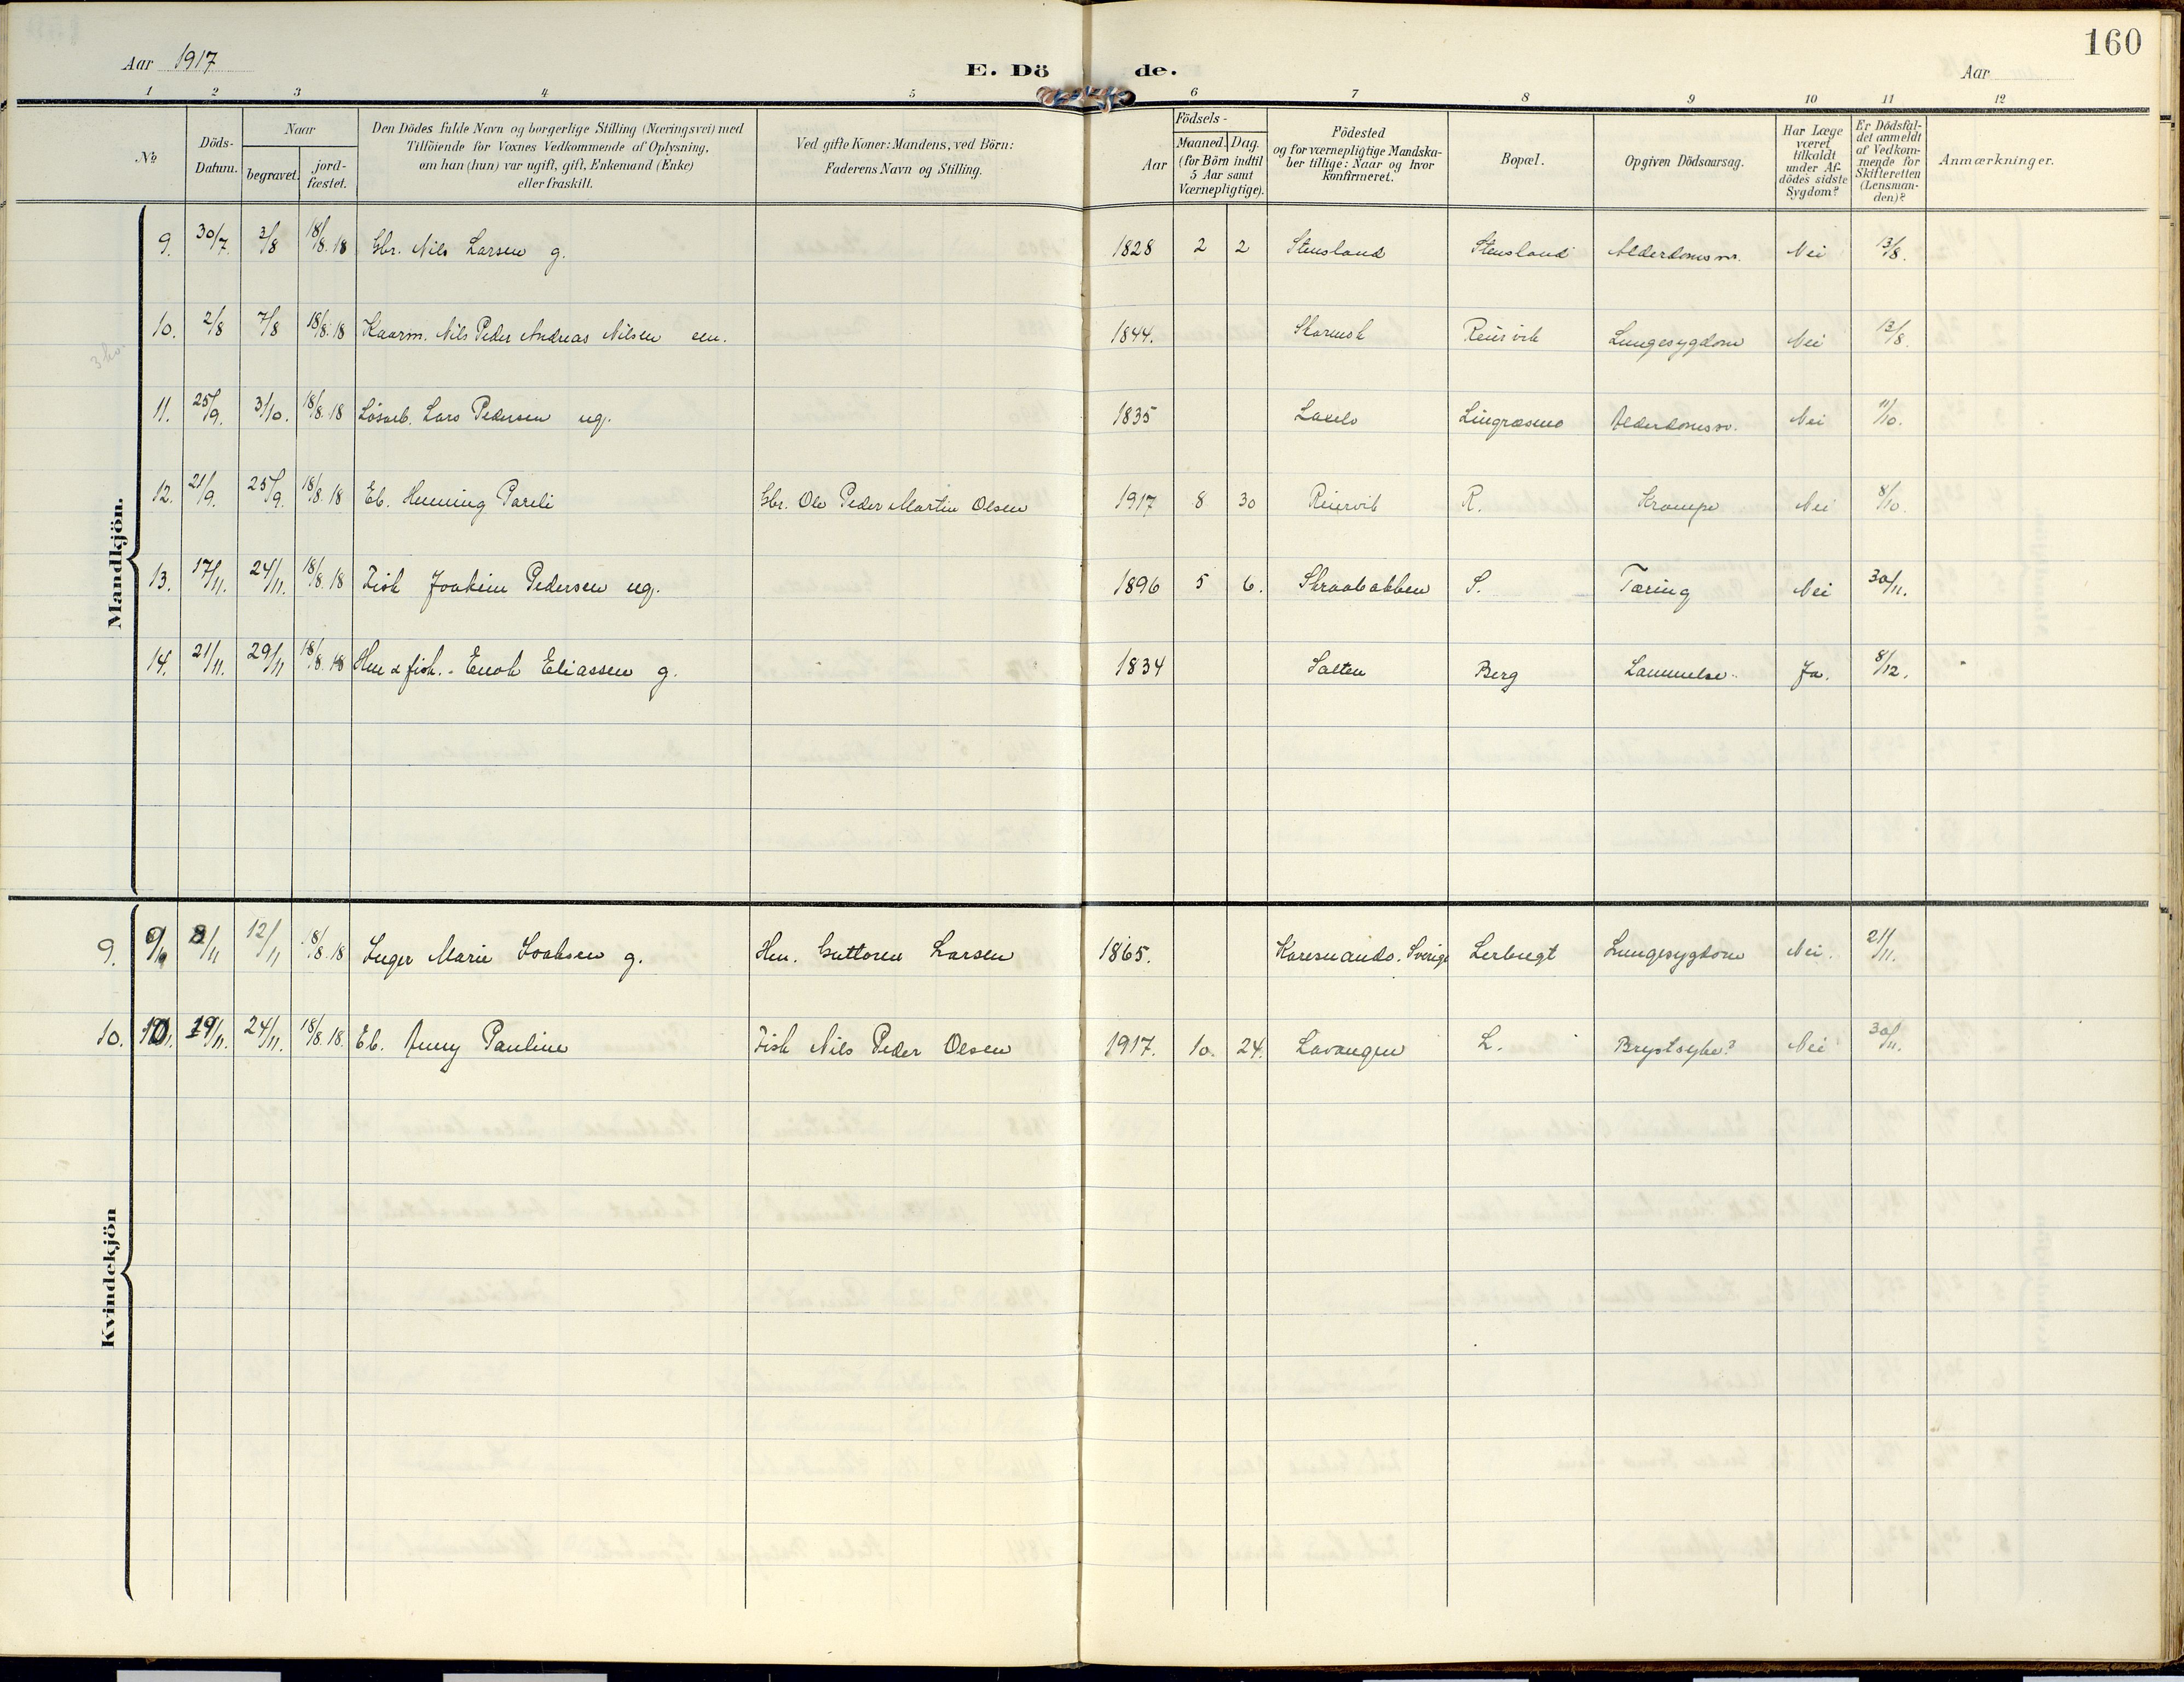 160
Aar 1917
E. Dö de.
Aar
1 2 3 4 5 6 7 8 9 10 11 12
No
Döds-
Datum.
Naar
begravet.
jord-
fæstet.
Den Dödes fulde Navn og borgerlige Stilling (Næringsvei) med
Tilföiende for Voxnes Vedkommende af Oplysning,
om han (hun) var ugift, gift, Enkemand (Enke)
eller fraskilt.
Ved gifte Koner: Mandens, ved Börn:
Faderens Navn og Stilling.
Födsels-
Aar
Maaned. Dag.
(for Börn indtil
5 Aar samt
Værnepligtige).
Födested
og for værnepligtige Mandska-
ber tillige: Naar og hvor
konfirmeret.
Bopæl.
Opgiven Dödsaarsag.
Har Læge
været
tilkaldt
under Af-
dödes sidste
Sygdom?
Er Dödsfal-
det anmeldt
af Vedkom-
mende for
Skifteretten
(Lensman-
den)?
Anmærkninger.
Mandkjön.
9. 30/7. 3/8 18/8.18 Gbr. Nils Larsen g. 1828 2 2 Stensland Stensland Alderdomssv. Nei 13/8.
10. 2/8 7/8 18/8.18 Kaarm. Nils Peder Andreas Nilsen em. 1844. Reisvik Lungesygdom Nei 13/8.
11. 25/9. 3/10. 18/8.18 Lösarb. Lars Pedersen ug. 1835 Laxelv Alderdomssv. Nei 11/10.
12. 21/9. 25/9. 18/8.18 Eb. Henning Pareli Gbr. Ole Peder Martin Olsen 1917 8 30 R. Krampe Nei 8/10.
13. 17/11. 24/11. 18/8.18 Fisk Joakim Pedersen ug. 1896 5 6. Skraabakken S. Tæring Nei 30/11.
14. 21/11. 29/11 18/8.18 Hm & fisk. - Enok Eliassen g. 1834 Salten Berg Lammelse. Ja. 8/12.
Kvindekjön
9. 8/11 12/11 18/8.18 Inger Marie Isaksen g. Hm. Guttorm Larsen 1865. Karesuando. Sverige Lerbugt Lungesygdom Nei. 21/11.
10. 19/11. 24/11. 18/8.18. Eb. Jenny Pauline Fisk Nils Peder Olsen 1917. 10. 24. Lavangen L. Brystsyke? Nei 30/11.